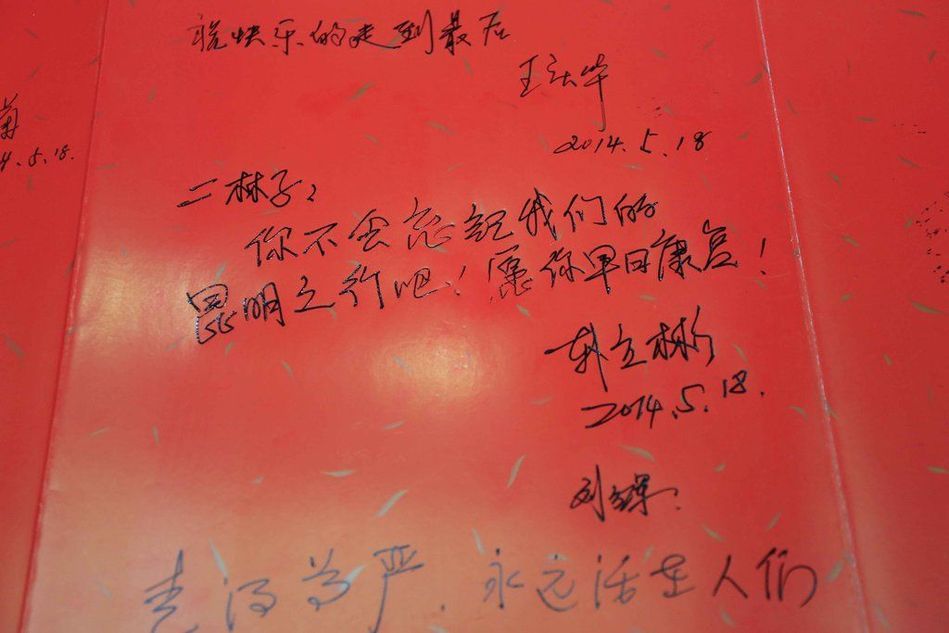 祝快乐的走到最后
2014.5.18
二林子：
你不会忘记我们的
昆明之行吧！愿你早日康复！
韩立彬
2014.5.18.
4.5.18.
走得尊严．永远活在人们